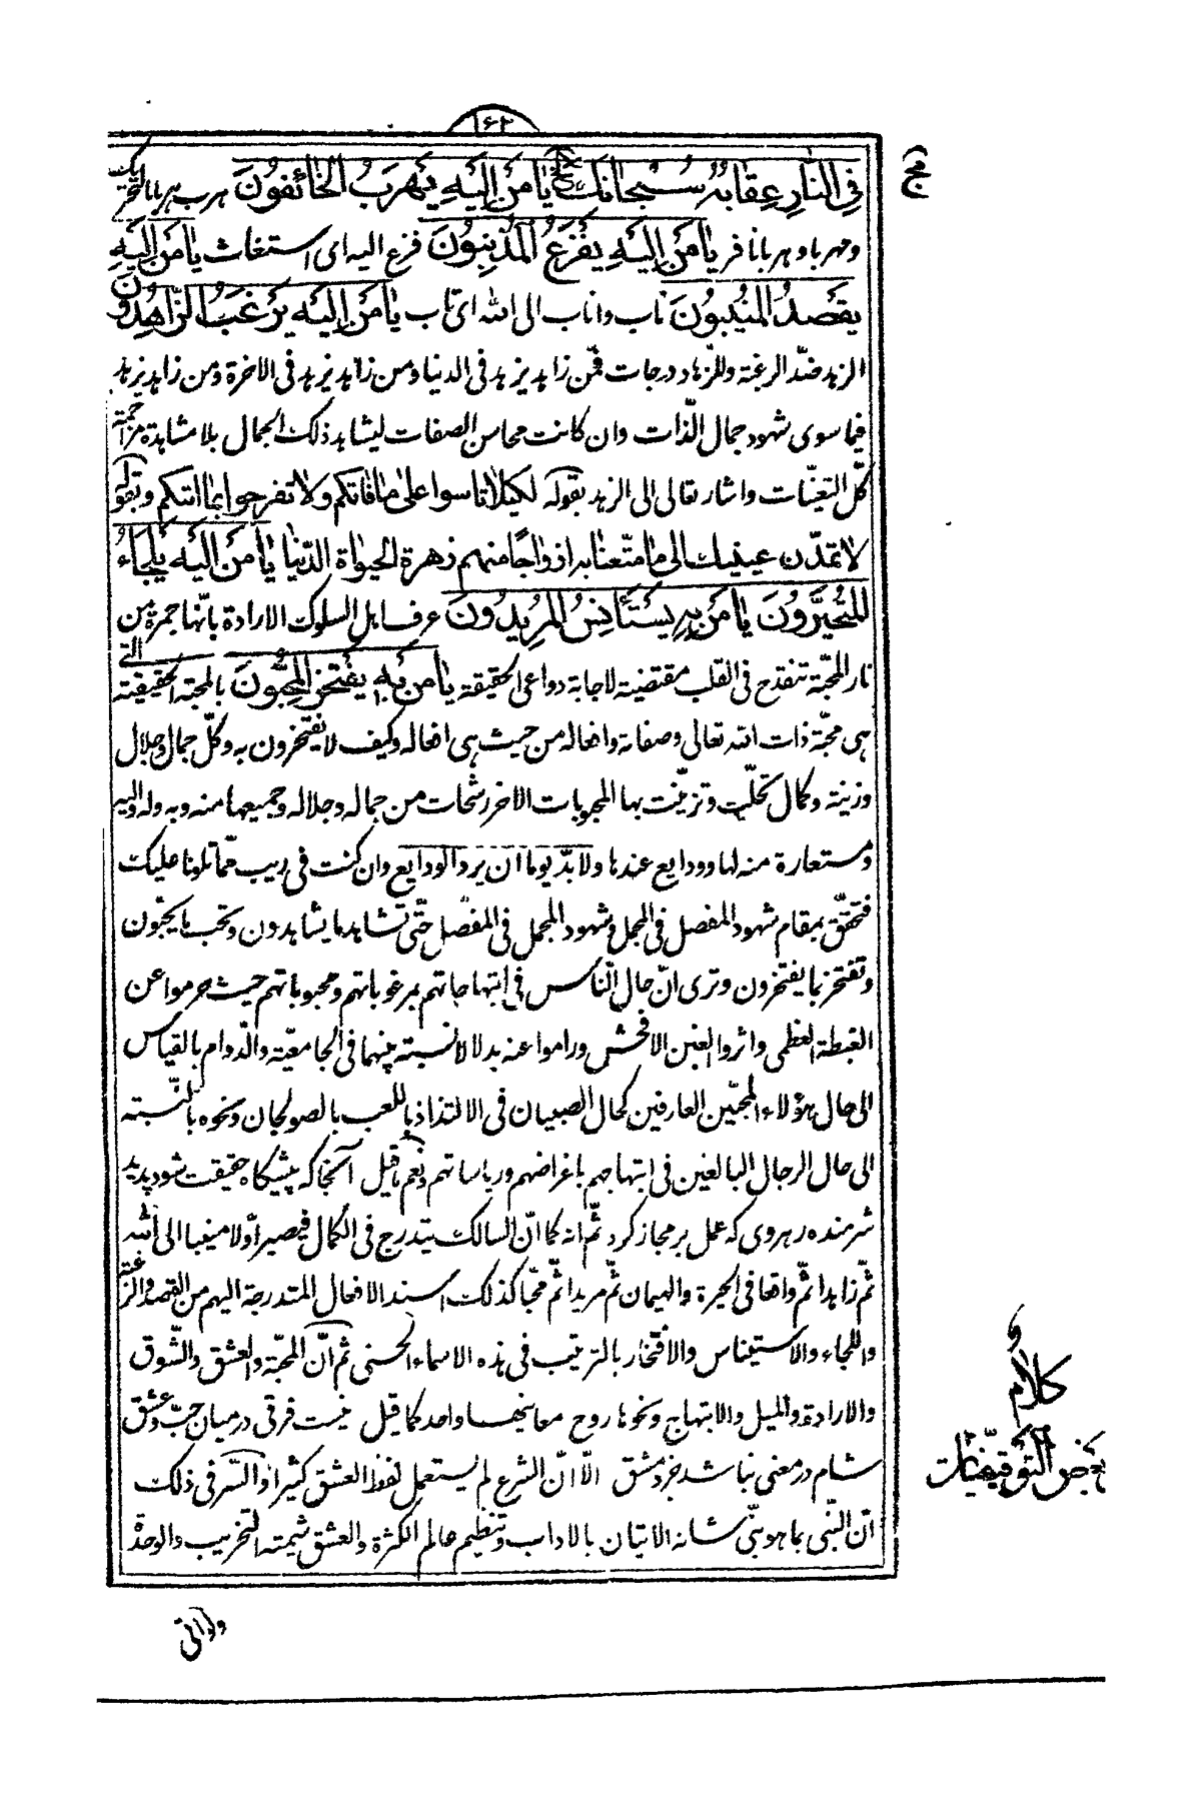 ١٦٢
مج
فِی النّارِ عِقابُهُ سُبْحانَكَ يا مَنْ اِلَيْهِ يَهْرَبُ الخائِفُونَ هرب هربا بالتحريك
ومهربا وهربانا فر يا مَنْ اِلَيْهِ يَفْزَعُ الْمُذْنِبُونَ فزع اليه ای استغاث يا مَنْ اِلَيْهِ
يَقْصِدُ المُنيبُونَ ناب واناب الى الله ای تاب يا مَنْ اِلَيْهِ يَرْغَبُ الزّاهِدُونَ
الزهد ضدّ الرغبة وللزّهاد درجات فمن زاهد يزهد فى الدنيا ومن زاهد يزهد فى الآخرة ومن زاهد يزهد
فيما سوى شهود جمال الذّات وان كانت محاسن الصفات ليشاهد ذلك الجمال بلا مشاهدة مزاحمة
كلّ التعيّنات واشار تعالى الى الزهد بقوله لكيلا تاسوا على ما فاتكم ولا تفرحوا بما اتيكم وبقوله
لا تمدّن عينيك الى ما متّعنا به ازواجًا منهم زهرة الحيوة الدّنيا يا مَنْ اِلَيْهِ يَلْجَأُ
المُتَحَيِّرُونَ يا مَنْ بِهِ يَسْتَأنِسُ المُريدُونَ عرف اهل السلوك الارادة بانّها جمرة من
نار المحبّة تنقدح فى القلب مقتضية لاجابة دواعى الحقيقة يا مَنْ بِهِ يَفْتَخِرُ المُحِبُّونَ بالمحبة الحقيقية التى
هى محبّة ذات الله تعالى وصفاته وافعاله من حيث هى افعاله وكيف لا يفتخرون به وكلّ جمال وجلال
وزينة وكمال تحلّيت وتزيّنت بها المحبوبات الاخر رشحات من جماله وجلاله وجميعها منه وبه وله واليه
ومستعارة منه لها وودايع عندها ولا بدّ يوما ان يرد الودايع وان كنت فى ريب ممّا تلونا عليك
فتحقّق بمقام شهود المفصل فى المجمل وشهود المجمل فى المفصّل حتّى تشاهد ما يشاهدون وتحب ما يحبّون
وتفتخر بما يفتخرون وترى انّ حال النّاس فى ابتهاجاتهم بمرغوباتهم ومحبوباتهم حيث حرموا عن
الغبطة العظمى واثروا الغبن الافحش وراموا عنه بدلا لا نسبة بينهما فى الجامعيّة والدّوام بالقياس
الى حال هؤلاء المحبّين العارفين كحال الصبيان فى الالتذاذ باللعب بالصولجان ونحوه بالنّسبة
الى حال الرجال البالغين فى ابتهاجهم باغراضهم ورياساتهم ونعم ما قيل آنجا كه پيشگاه حقيقت شود پديد
شرمنده رهروی كه عمل بر مجاز كرد ثمّ انه كما انّ السالك يتدرج فى الكمال فيصير اوّلا منيبا الى الله
ثمّ زاهدا ثمّ واقعا فى الحيرة والهيمان ثمّ مريدا ثمّ محبّا كذلك اسند الافعال المتدرجة اليهم من القصد والرغبة
واللجاء والاستيناس والافتخار بالترتيب فى هذه الاسماء الحسنى ثمّ انّ المحبّة والعشق والشّوق
والارادة والميل والابتهاج ونحوها روح معانيها واحد كما قيل نيست فرقی درميان حبّ وعشق
شام در معنی نباشد جز دمشق الّا انّ الشرع لم يستعمل لفظ العشق كثيرا والسّر فى ذلك
انّ النّبى بما هو نبىّ شانه الاتيان بالاداب وتنظيم عالم الكثرة والعشق شيمته التخريب والوحدة
و
كلام
بعض التوقيفيّات